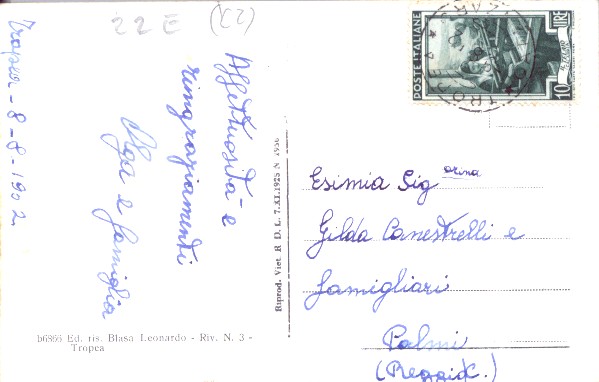 22E (C2)
Tropea - 8-8-1952
Affettuosità e
ringraziamenti
Olga e famiglia
b6866 Ed. ris. Blasa Leonardo - Riv. N. 3 -
Tropea
Riprod. Viet. R D. L. 7.XI.1925 N 1936
POSTE ITALIANE
LIRE
10
Esimia Sigorina
Gilda Canestrelli e
famigliari
Palmi
(Reggio C.)